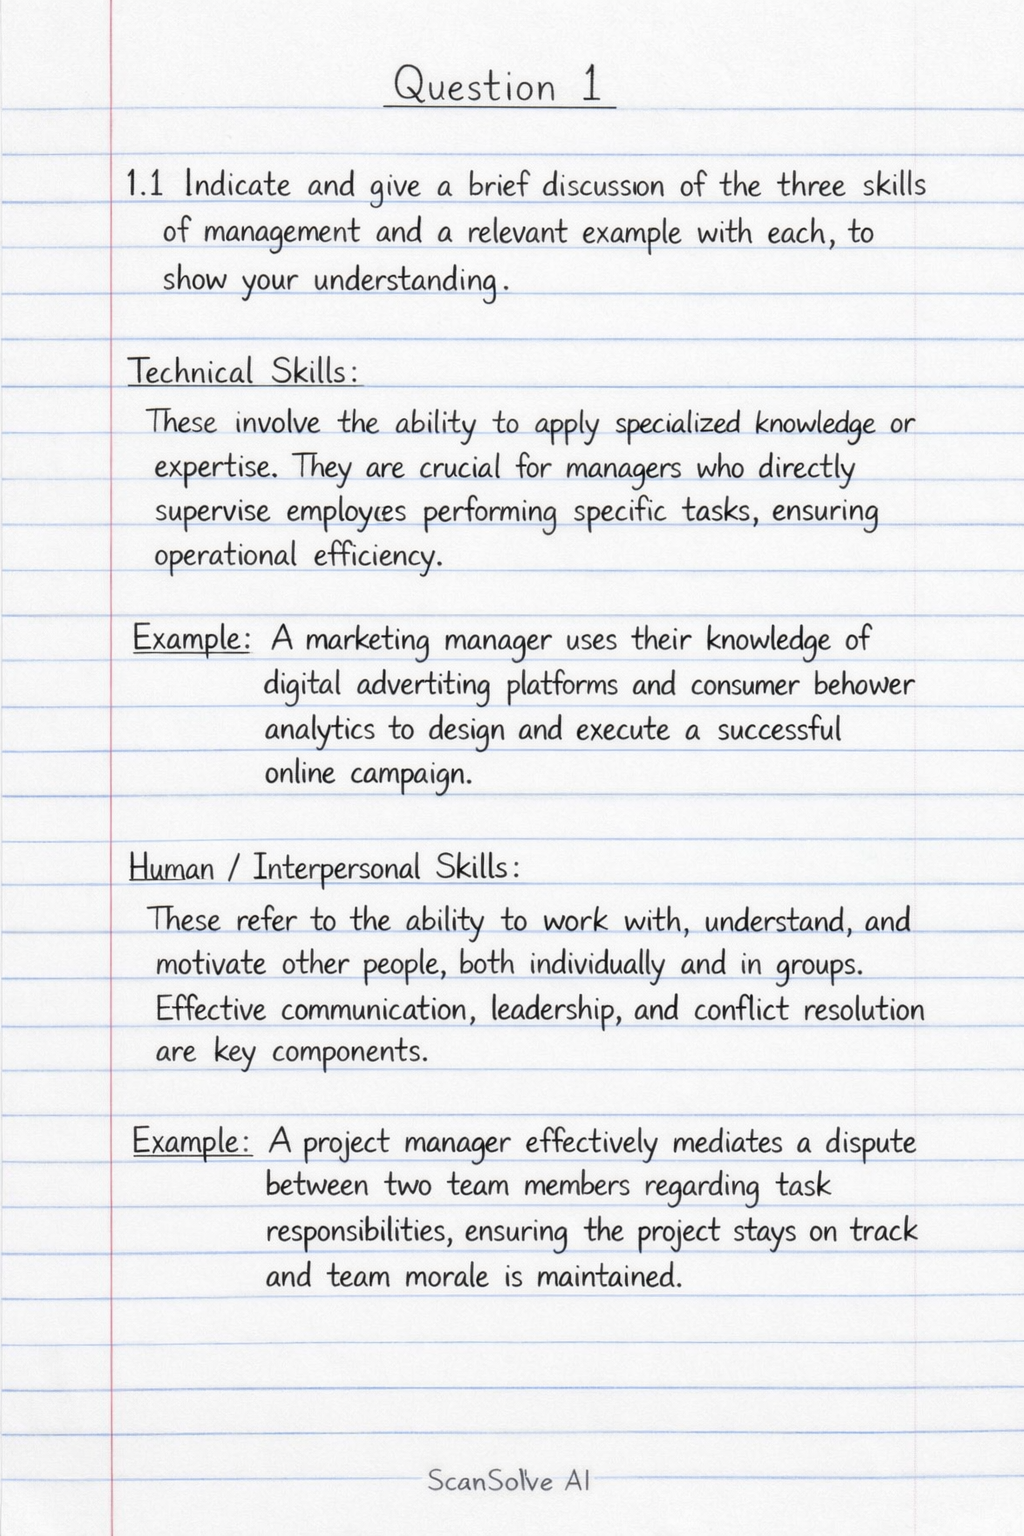 Question 1
1.1 Indicate and give a brief discussion of the three skills
of management and a relevant example with each, to
show your understanding.
Technical Skills:
These involve the ability to apply specialized knowledge or
expertise. They are crucial for managers who directly
supervise employees performing specific tasks, ensuring
operational efficiency.
Example: A marketing manager uses their knowledge of
digital advertiting platforms and consumer behower
analytics to design and execute a successful
online campaign.
Human / Interpersonal Skills:
These refer to the ability to work with, understand, and
motivate other people, both individually and in groups.
Effective communication, leadership, and conflict resolution
are key components.
Example: A project manager effectively mediates a dispute
between two team members regarding task
responsibilities, ensuring the project stays on track
and team morale is maintained.
ScanSolve AI